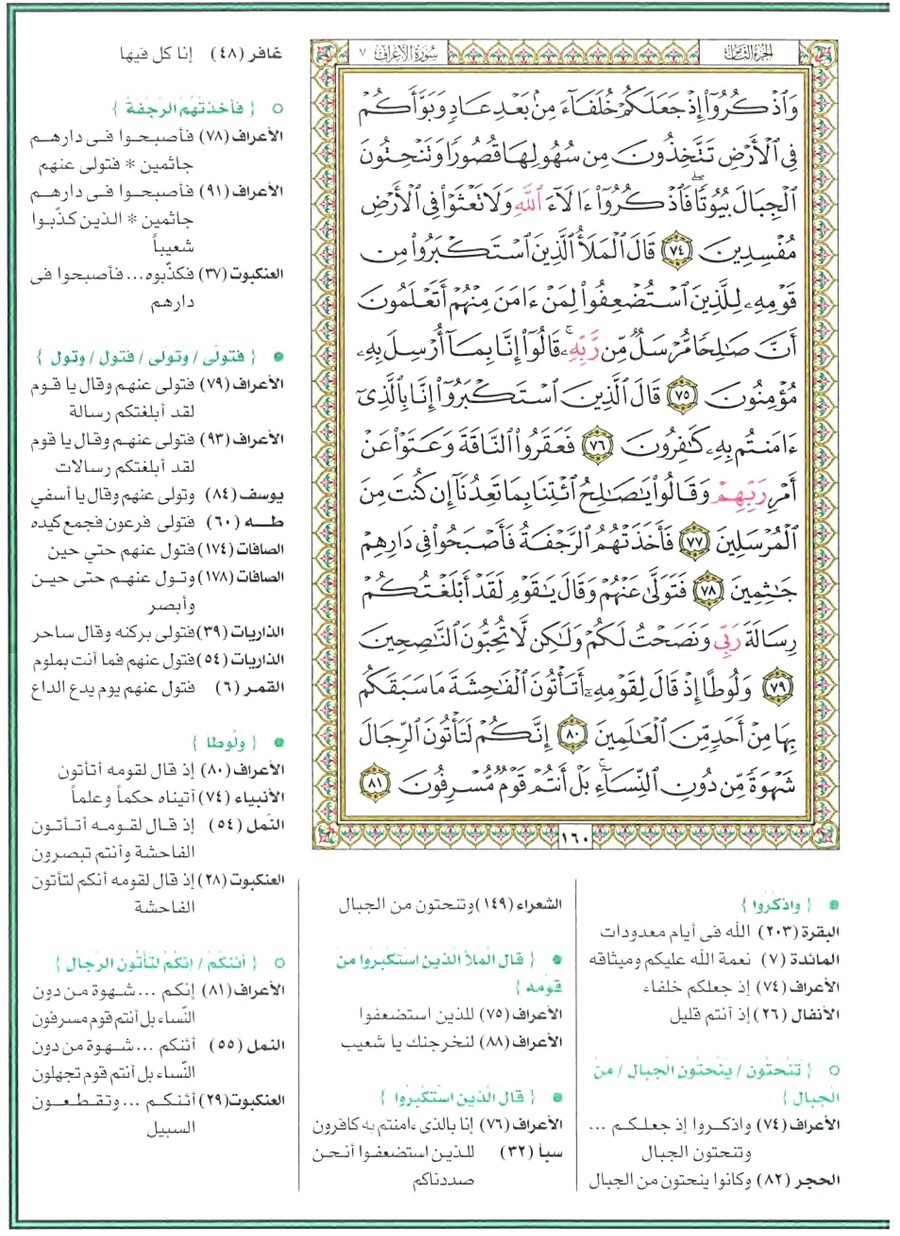 الجزء الثامن
سورة الأعراف ٧
وَاذْكُرُوا إِذْ جَعَلَكُمْ خُلَفَاءَ مِنْ بَعْدِ عَادٍ وَبَوَّأَكُمْ
فِي الْأَرْضِ تَتَّخِذُونَ مِن سُهُولِهَا قُصُورًا وَتَنْحِتُونَ
الْجِبَالَ بُيُوتًا فَاذْكُرُوا ءَالَاءَ اللَّهِ وَلَا تَعْثَوْا فِي الْأَرْضِ
مُفْسِدِينَ ٧٤ قَالَ الْمَلَأُ الَّذِينَ اسْتَكْبَرُوا مِن
قَوْمِهِ لِلَّذِينَ اسْتُضْعِفُوا لِمَنْ ءَامَنَ مِنْهُمْ أَتَعْلَمُونَ
أَنَّ صَالِحًا مُّرْسَلٌ مِّن رَّبِّهِ قَالُوا إِنَّا بِمَا أُرْسِلَ بِهِ
مُؤْمِنُونَ ٧٥ قَالَ الَّذِينَ اسْتَكْبَرُوا إِنَّا بِالَّذِي
ءَامَنتُم بِهِ كَافِرُونَ ٧٦ فَعَقَرُوا النَّاقَةَ وَعَتَوْا عَنْ
أَمْرِ رَبِّهِمْ وَقَالُوا يَاصَالِحُ ائْتِنَا بِمَا تَعِدُنَا إِن كُنتَ مِنَ
الْمُرْسَلِينَ ٧٧ فَأَخَذَتْهُمُ الرَّجْفَةُ فَأَصْبَحُوا فِي دَارِهِمْ
جَاثِمِينَ ٧٨ فَتَوَلَّى عَنْهُمْ وَقَالَ يَاقَوْمِ لَقَدْ أَبْلَغْتُكُمْ
رِسَالَةَ رَبِّي وَنَصَحْتُ لَكُمْ وَلَكِن لَّا تُحِبُّونَ النَّاصِحِينَ
٧٩ وَلُوطًا إِذْ قَالَ لِقَوْمِهِ أَتَأْتُونَ الْفَاحِشَةَ مَا سَبَقَكُم
بِهَا مِنْ أَحَدٍ مِّنَ الْعَالَمِينَ ٨٠ إِنَّكُمْ لَتَأْتُونَ الرِّجَالَ
شَهْوَةً مِّن دُونِ النِّسَاءِ بَلْ أَنتُمْ قَوْمٌ مُّسْرِفُونَ ٨١
١٦٠
{ واذكروا }
البقرة (٢٠٣) الله فى أيام معدودات
المائدة (٧) نعمة الله عليكم وميثاقه
الأعراف (٧٤) إذ جعلكم خلفاء
الأنفال (٢٦) إذ أنتم قليل
{ تنحتون / ينحتون الجبال / من
الجبال }
الأعراف (٧٤) واذكروا إذ جعلكم ...
وتنحتون الجبال
الحجر (٨٢) وكانوا ينحتون من الجبال
الشعراء (١٤٩) وتنحتون من الجبال
{ قال الملأ الذين استكبروا من
قومه }
الأعراف (٧٥) للذين استضعفوا
الأعراف (٨٨) لنخرجنك يا شعيب
{ قال الذين استكبروا }
الأعراف (٧٦) إنا بالذى ءامنتم به كافرون
سبأ (٣٢) للذين استضعفوا أنحن
صددناكم
غافر (٤٨) إنا كل فيها
{ فأخذتهم الرجفة }
الأعراف (٧٨) فأصبحوا فى دارهم
جاثمين * فتولى عنهم
الأعراف (٩١) فأصبحوا فى دارهم
جاثمين * الذين كذّبوا
شعيباً
العنكبوت (٣٧) فكذّبوه... فأصبحوا فى
دارهم
{ فتولى / وتولى / فتول / وتول }
الأعراف (٧٩) فتولى عنهم وقال يا قوم
لقد أبلغتكم رسالة
الأعراف (٩٣) فتولى عنهم وقال يا قوم
لقد أبلغتكم رسالات
يوسف (٨٤) وتولى عنهم وقال يا أسفي
طه (٦٠) فتولى فرعون فجمع كيده
الصافات (١٧٤) فتول عنهم حتي حين
الصافات (١٧٨) وتول عنهم حتى حين
وأبصر
الذاريات (٣٩) فتولى بركنه وقال ساحر
الذاريات (٥٤) فتول عنهم فما أنت بملوم
القمر (٦) فتول عنهم يوم يدع الداع
{ ولوطا }
الأعراف (٨٠) إذ قال لقومه أتأتون
الأنبياء (٧٤) آتيناه حكماً وعلماً
النمل (٥٤) إذ قال لقومه أتأتون
الفاحشة وأنتم تبصرون
العنكبوت (٢٨) إذ قال لقومه أنكم لتأتون
الفاحشة
{ أئنكم / إنكم لتأتون الرجال }
الأعراف (٨١) إنكم ... شهوة من دون
النّساء بل أنتم قوم مسرفون
النمل (٥٥) أئنكم ... شهوة من دون
النّساء بل أنتم قوم تجهلون
العنكبوت (٢٩) أئنكم ...وتقطعون
السبيل